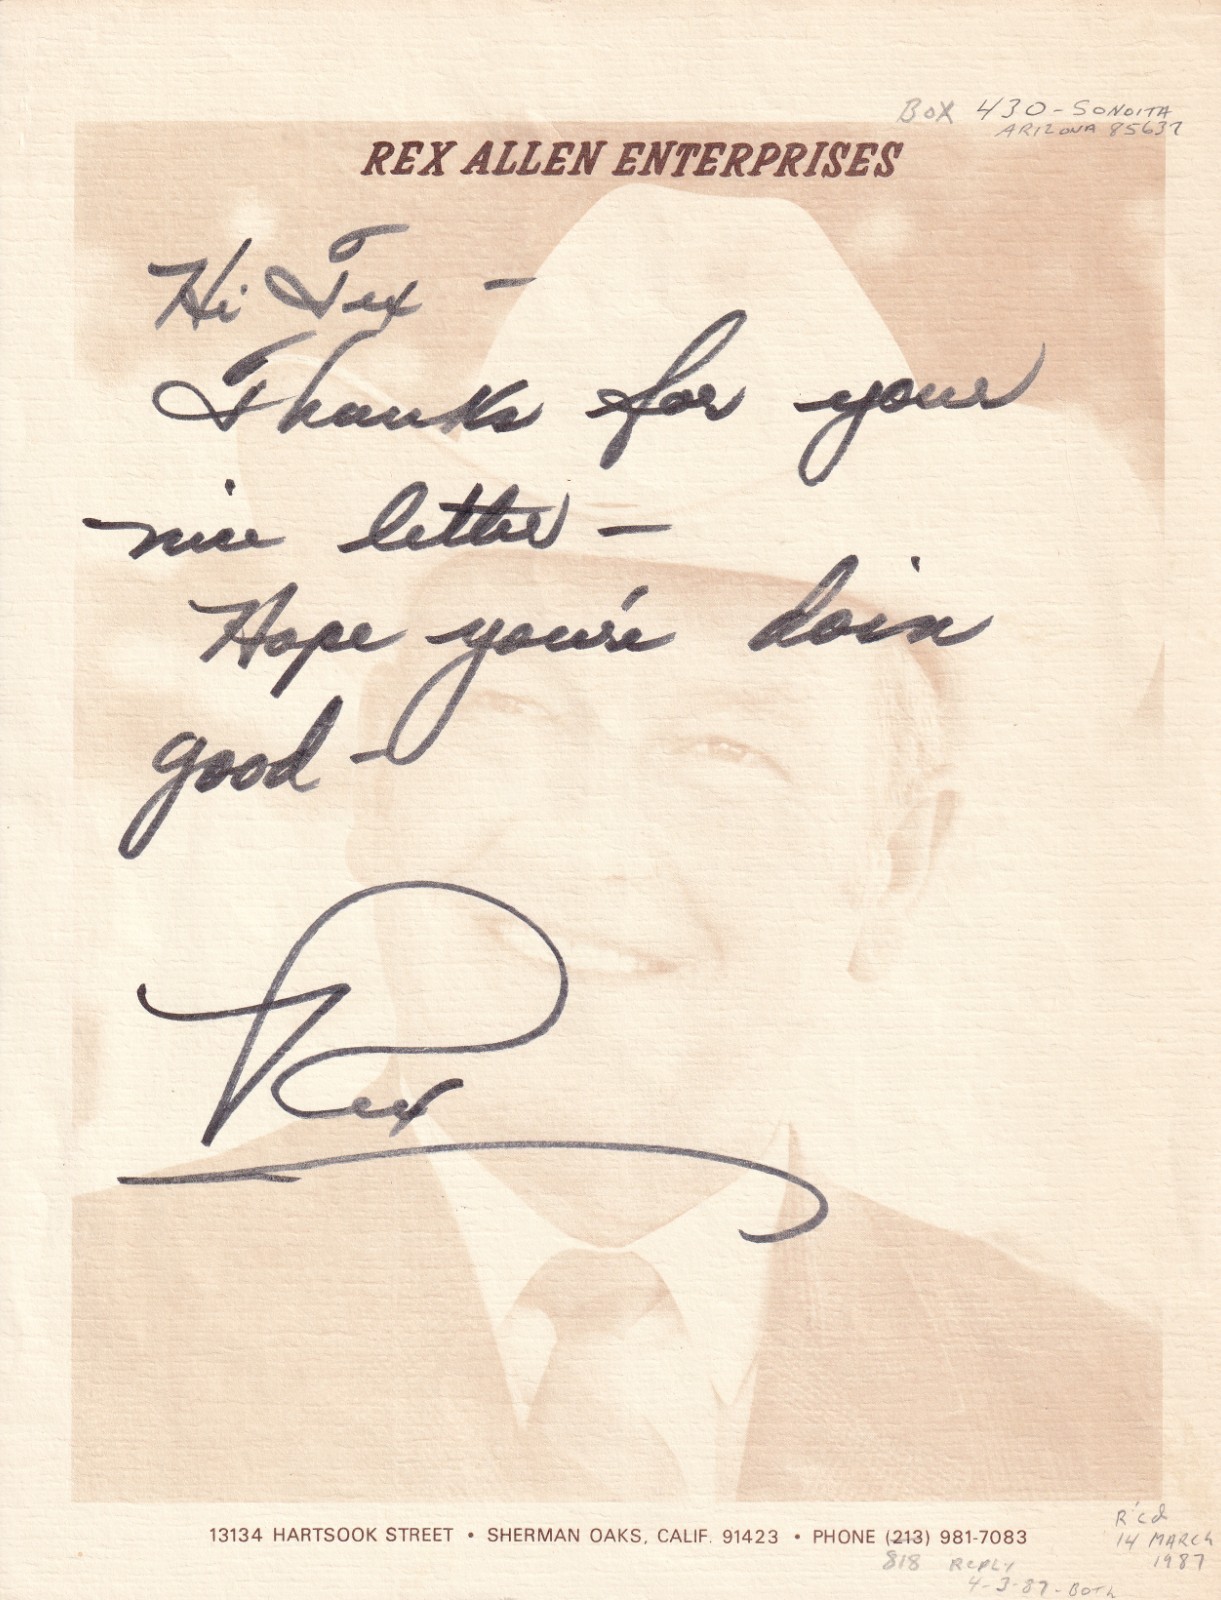 BOX 430 - SONOITA
ARIZONA 85637
REX ALLEN ENTERPRISES
Hi Tex -
Thanks for your
nice letter -
Hope you're doin
good -
Rex
13134 HARTSOOK STREET • SHERMAN OAKS, CALIF. 91423 • PHONE (213) 981-7083
818 REPLY
4-3-87 - BOTH
R'cd
14 MARCH
1987